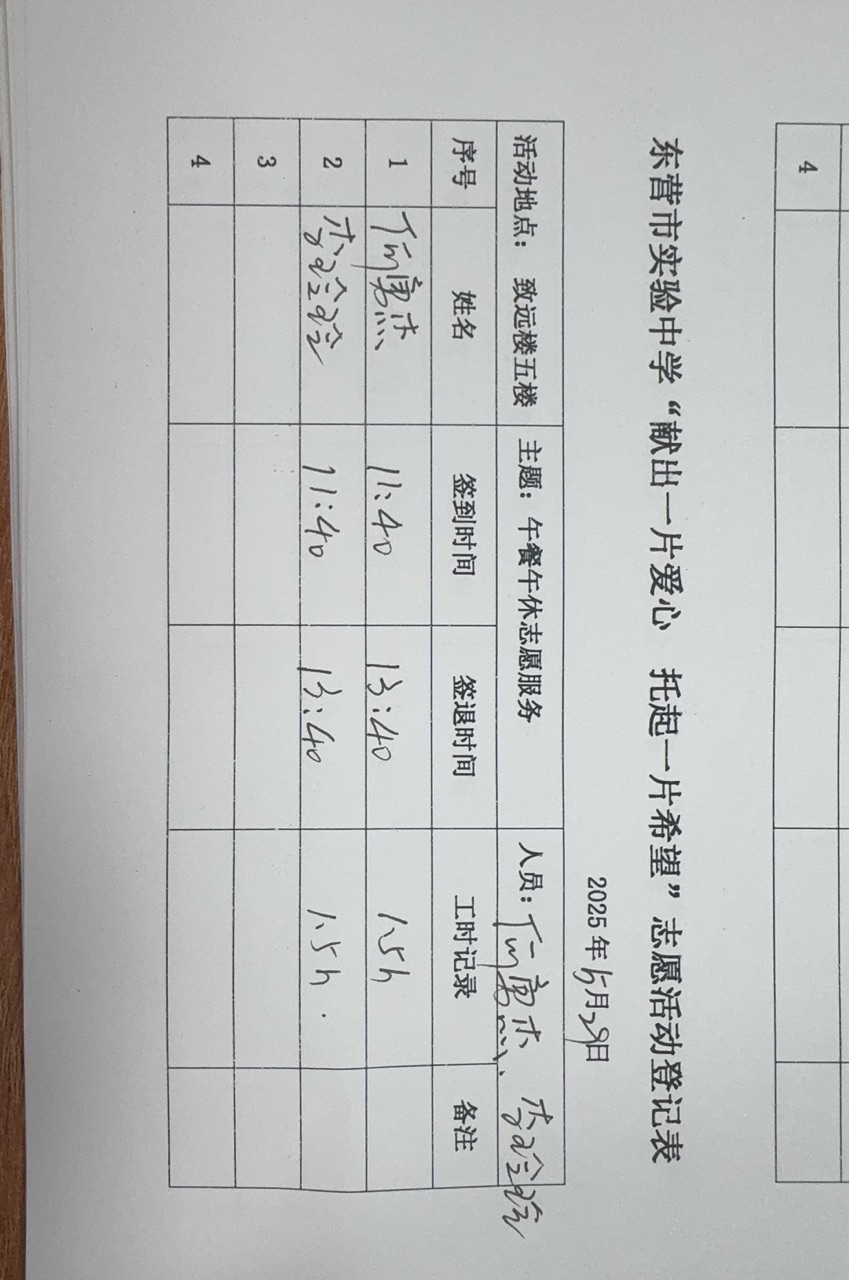 4
东营市实验中学“献出一片爱心 托起一片希望”志愿活动登记表
2025年5月29日
活动地点： 致远楼五楼 主题：午餐午休志愿服务 人员：
序号 姓名 签到时间 签退时间 工时记录 备注
1 11:40 13:40 1.5h
2 李 11:40 13:40 1.5h.
3
4